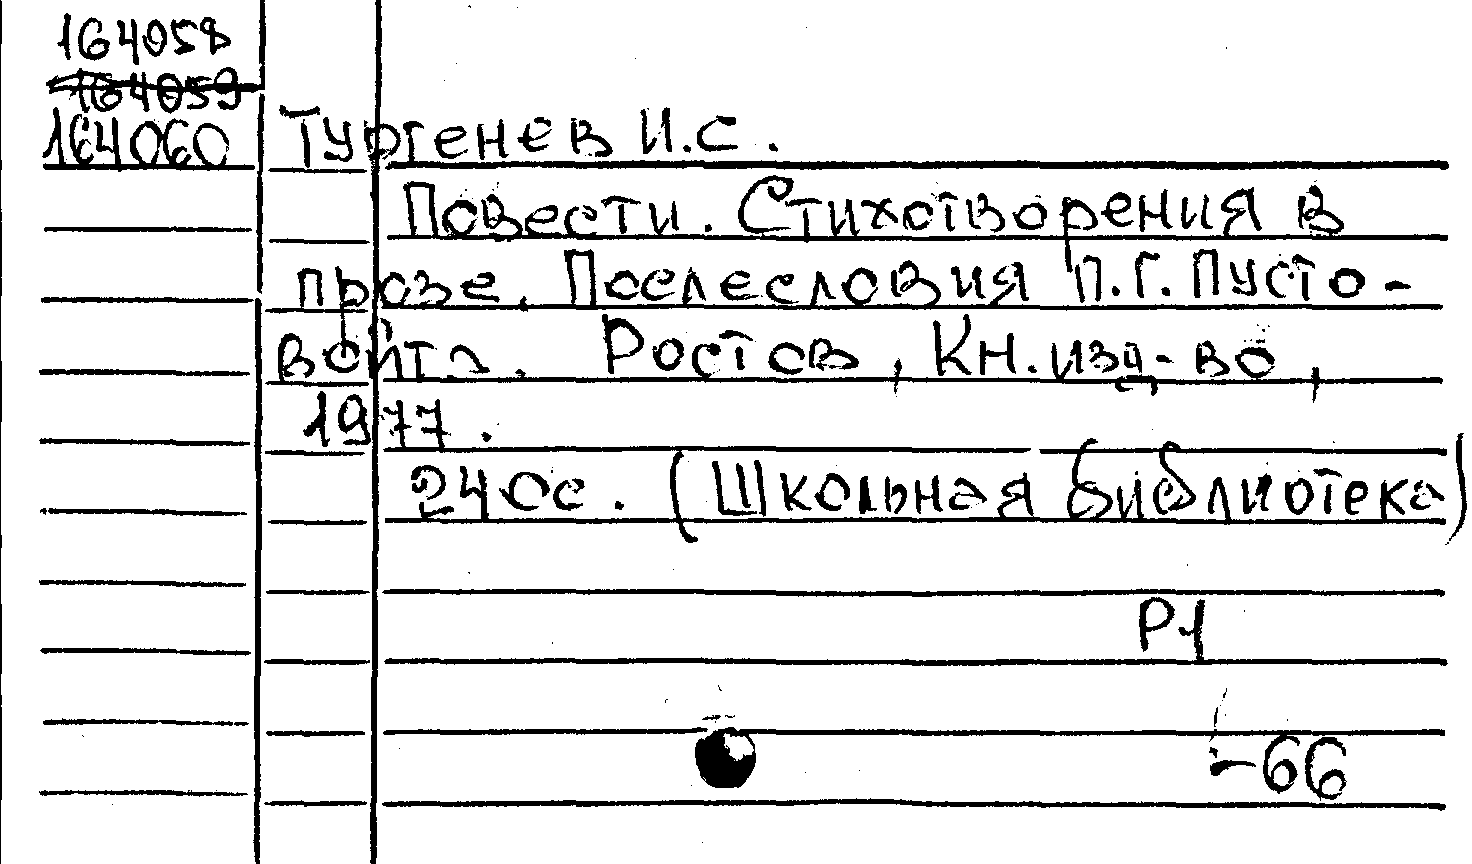 164058
164059
164060
Тургенев И.С.
Повести. Стихотворения в
прозе. Послесловия П.Г. Пусто-
войта. Ростов, Кн. изд-во,
1977.
240с. (Школьная библиотека)
Р1
-66